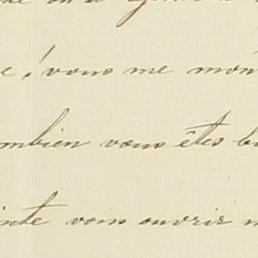 e, vous me mon
mbien vous êtes b
inte vous ouvrir m